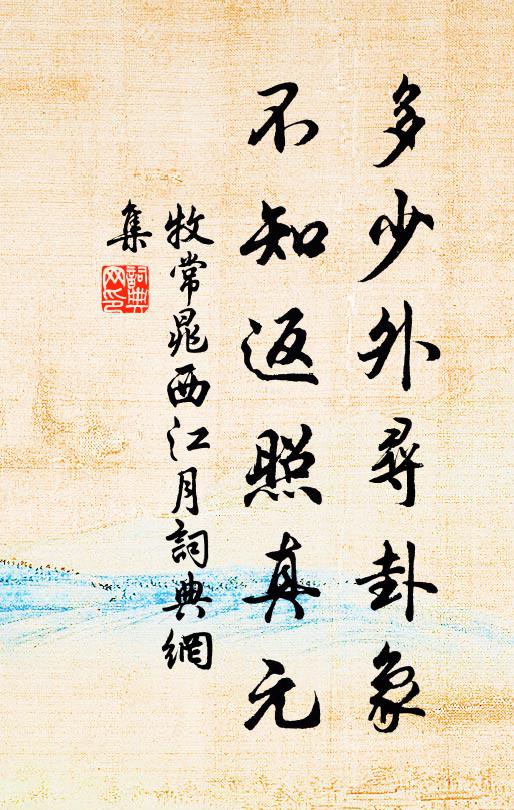 多少外尋卦象
不知返照真元
牧常晁西江月詞典網
集
詞典
网印